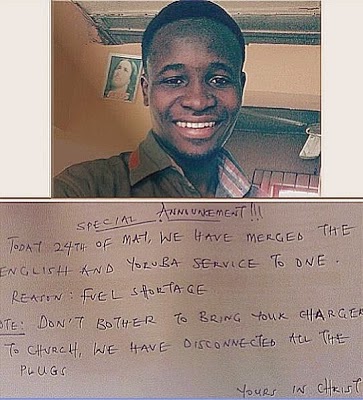 SPECIAL ANNOUNCEMENT!!!
TODAY 24TH OF MAY, WE HAVE MERGED THE
ENGLISH AND YORUBA SERVICE TO ONE.
REASON: FUEL SHORTAGE
OTE: DON'T BOTHER TO BRING YOUR CHARGER
TO CHURCH, WE HAVE DISCONNECTED ALL THE
PLUGS
YOURS IN CHRIST